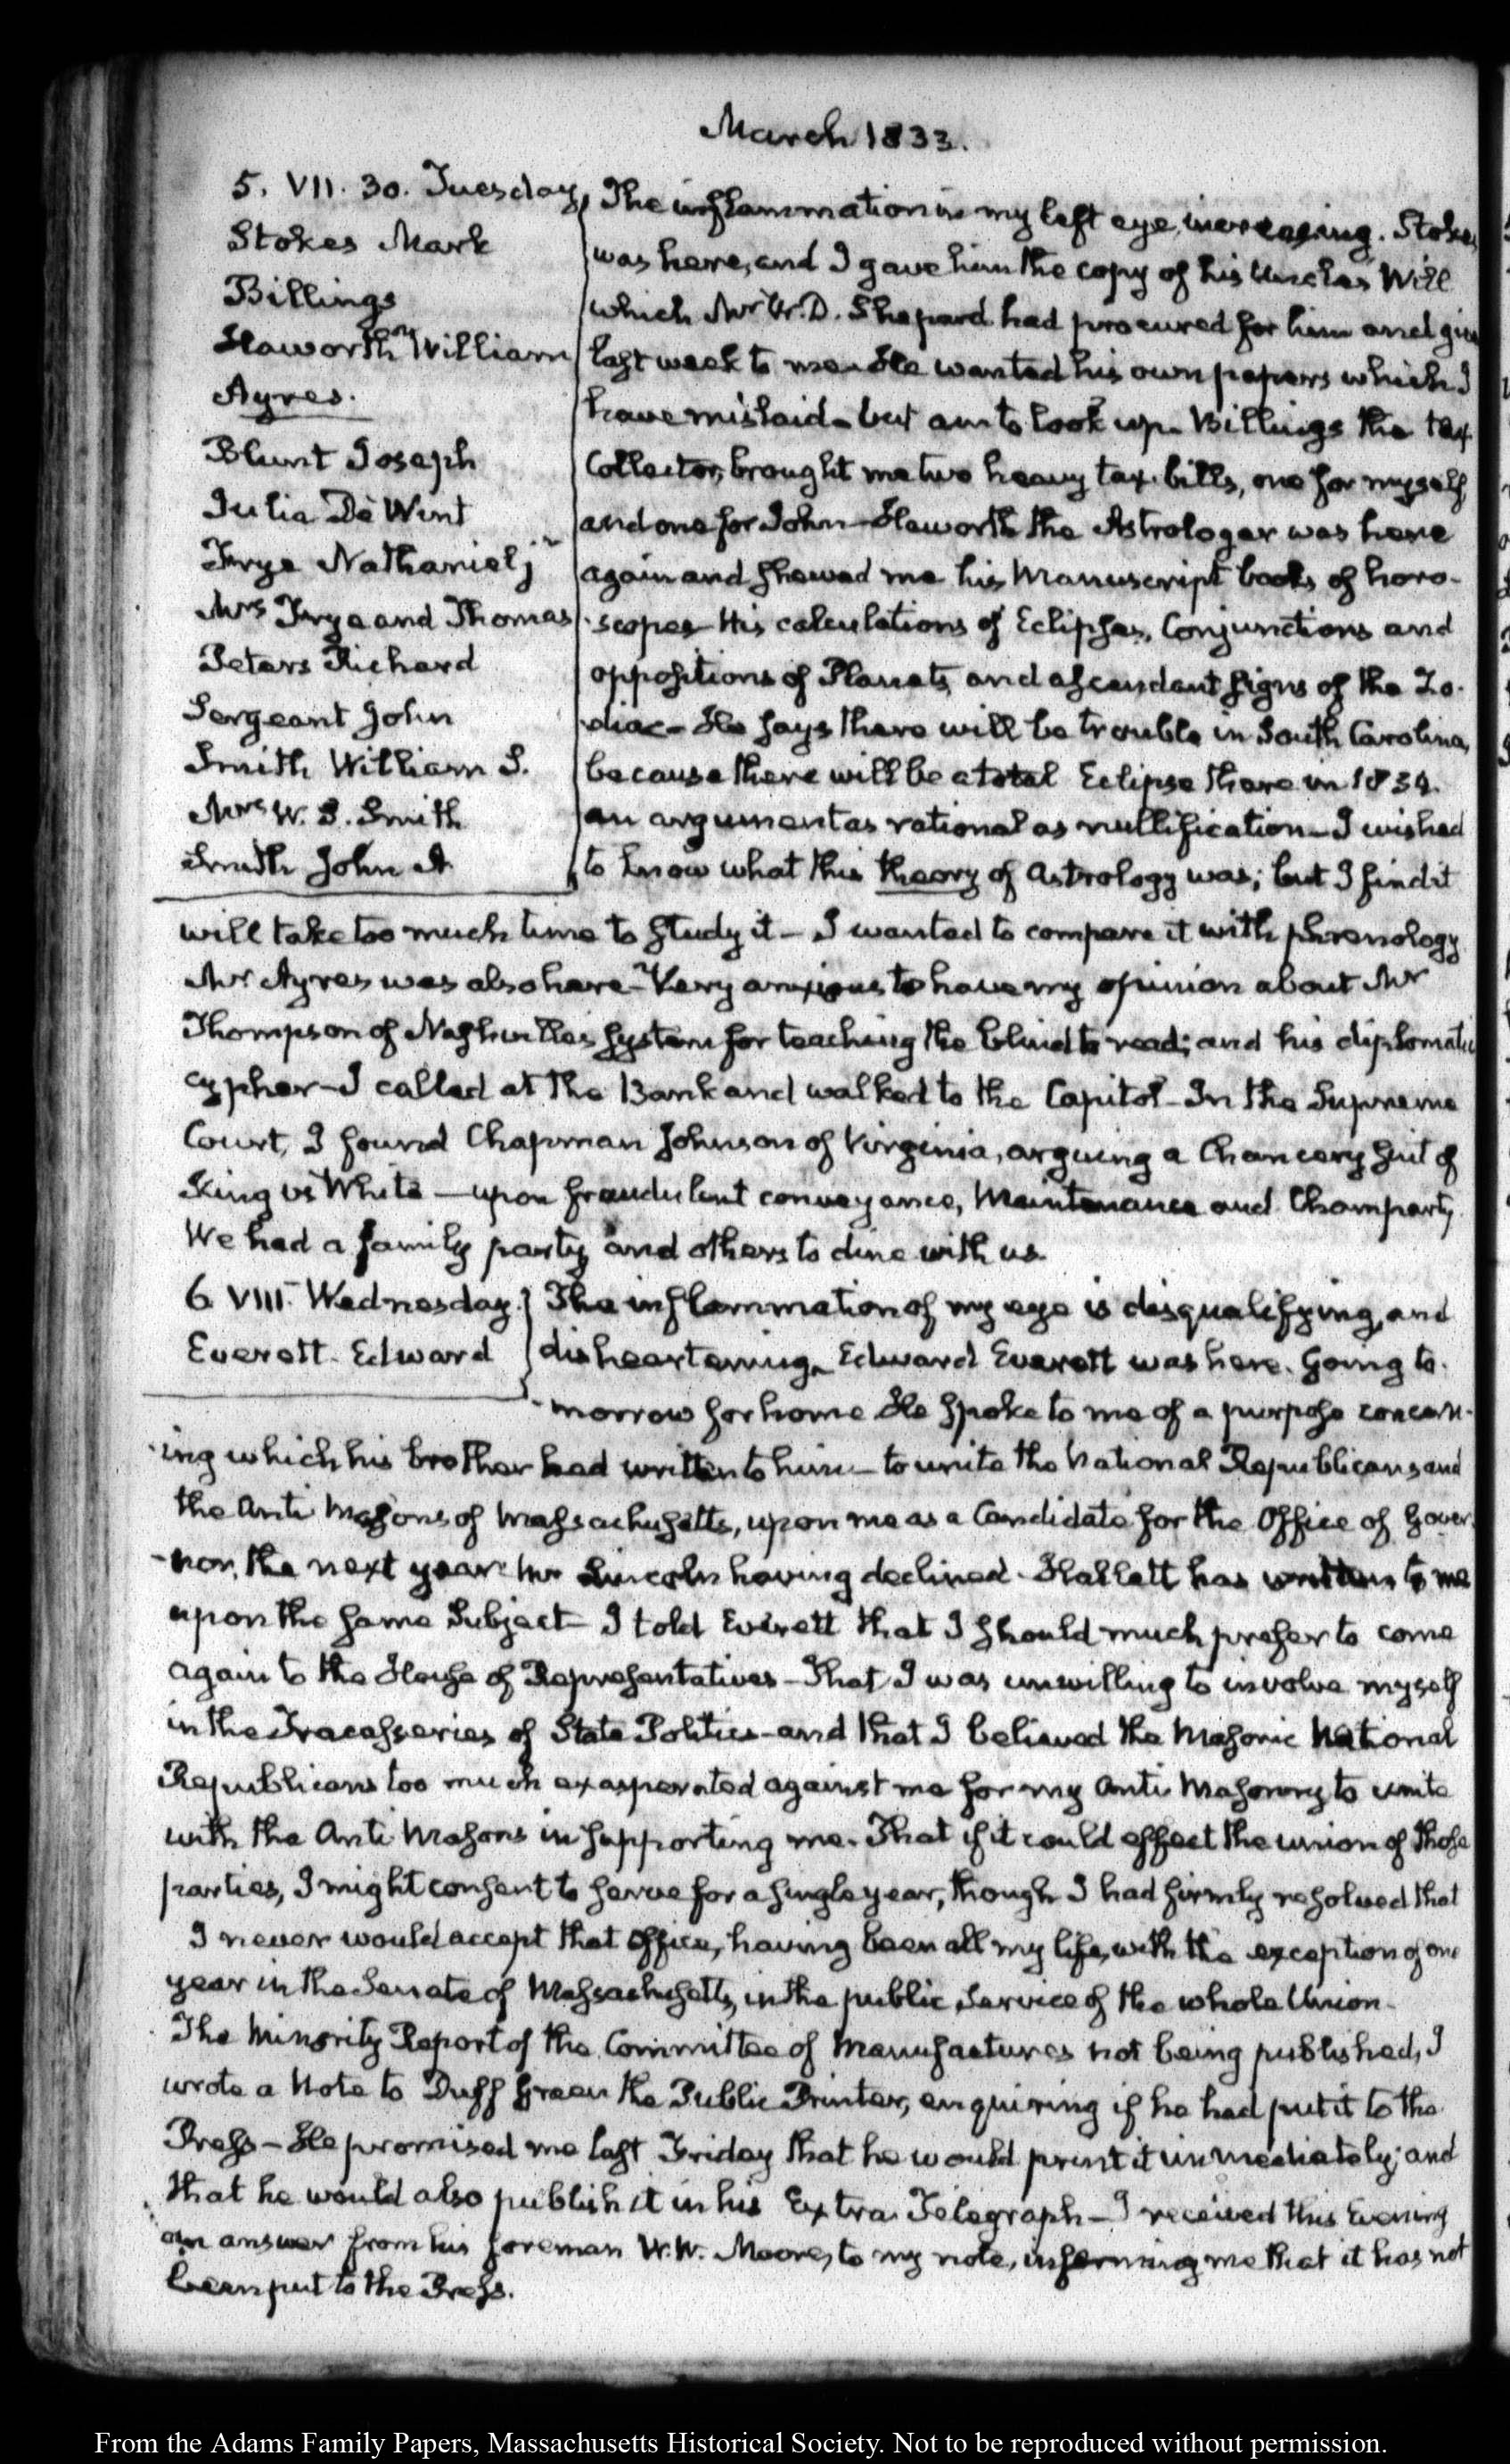 March 1833.
5. VII. 30. Tuesday,
Stokes Mark
Billings
Haworth William
Ayres.
Blunt Joseph
Julia De Wint
Frye Nathaniel jr
Mrs Frye and Thomas
Peters Richard
Sergeant John
Smith William S.
Mrs W. S. Smith
Smith John A
The inflammation in my left eye, increasing. Stokes
was here, and I gave him the copy of his Uncle's Will
which Mr W. D. Shepard had procured for him and
last week to me. He wanted his own papers which I
have mislaid - but am to look up. Billings the tax
Collector, brought me two heavy tax-bills, one for myself,
and one for John - Haworth the Astrologer was here
again and shewed me his Manuscript books of horo-
-scopes - His calculations of Eclipses, Conjunctions and
oppositions of Planets, and ascendant signs of the Zo-
-diac - He says there will be trouble in South Carolina,
because there will be a total Eclipse there in 1834.
an argument as rational as nullification - I wished
to know what this theory of Astrology was; but I find it
will take too much time to study it - I wanted to compare it with phrenology
Mr Ayres was also here - Very anxious to have my opinion about Mr
Thompson of Nashville's system for teaching the blind to read; and his diplomatic
cypher - I called at the Bank and walked to the Capitol - In the Supreme
Court, I found Chapman Johnson of Virginia, arguing a Chancery suit of
King vs White - upon fraudulent conveyance, Maintenance and Champarty,
We had a family party and others to dine with us.
6 VIII. Wednesday.
Everett. Edward
The inflammation of my eye is disqualifying, and
disheartening. Edward Everett was here. Going to-
-morrow for home He spoke to me of a purpose concern-
-ing which his brother had written to him - to unite the National Republicans and
the Anti Masons of Massachusetts, upon me as a Candidate for the Office of Gover-
-nor, the next year: Mr Lincoln having declined. Hallett has written to me
upon the same Subject - I told Everett that I should much prefer to come
again to the House of Representatives - That I was unwilling to involve myself
in the Tracasseries of State Politics - and that I believed the Masonic National
Republicans too much exasperated against me for my Anti Masonry to unite
with the Anti Masons in supporting me. That if it could effect the union of those
parties, I might consent to serve for a single year, though I had firmly resolved that
I never would accept that Office, having been all my life, with the exception of one
year in the Senate of Massachusetts, in the public Service of the whole Union.
The Minority Report of the Committee of Manufactures not being published, I
wrote a Note to Duff Green the Public Printer, enquiring if he had put it to the
Press - He promised me last Friday that he would print it immediately; and
that he would also publish it in his Extra Telegraph - I received this Evening
an answer from his foreman W. W. Moore, to my note, informing me that it has not
been put to the Press.
From the Adams Family Papers, Massachusetts Historical Society. Not to be reproduced without permission.